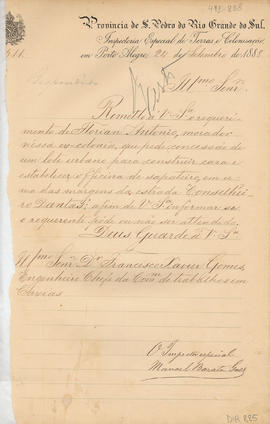 492-888
Provincia de S. Pedro do Rio Grande do Sul.
Inspectoria Especial de Terras e Colonisação,
em Porto Alegre, 24 de Setembro de 1888
Respondido
Illmo Senr.
Remetto a Vª Sª o requeri-
mento de Florian Antonio, morador
nessa ex-colonia, que pede concessão de
um lote urbano para construir casa e
estabelecer officina de sapateiro, em u-
ma das margens da estrada "Conselhei-
ro Dantas", afim de Vª Sª informar se
o requerente pode ou não ser attendido.
Deus Guarde a Vª Sª
Illmo Senr. Dr. Francisco Xavier Gomes,
Engenheiro Chefe da Comm de trabalhos em
Caxias
O Inspector especial
Manoel Barata Góes
DIR 225